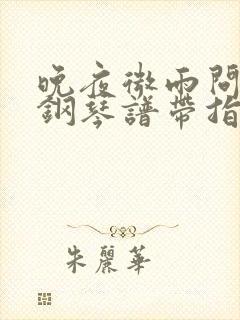 晚夜微雨問
鋼琴譜帶指
朱麗華